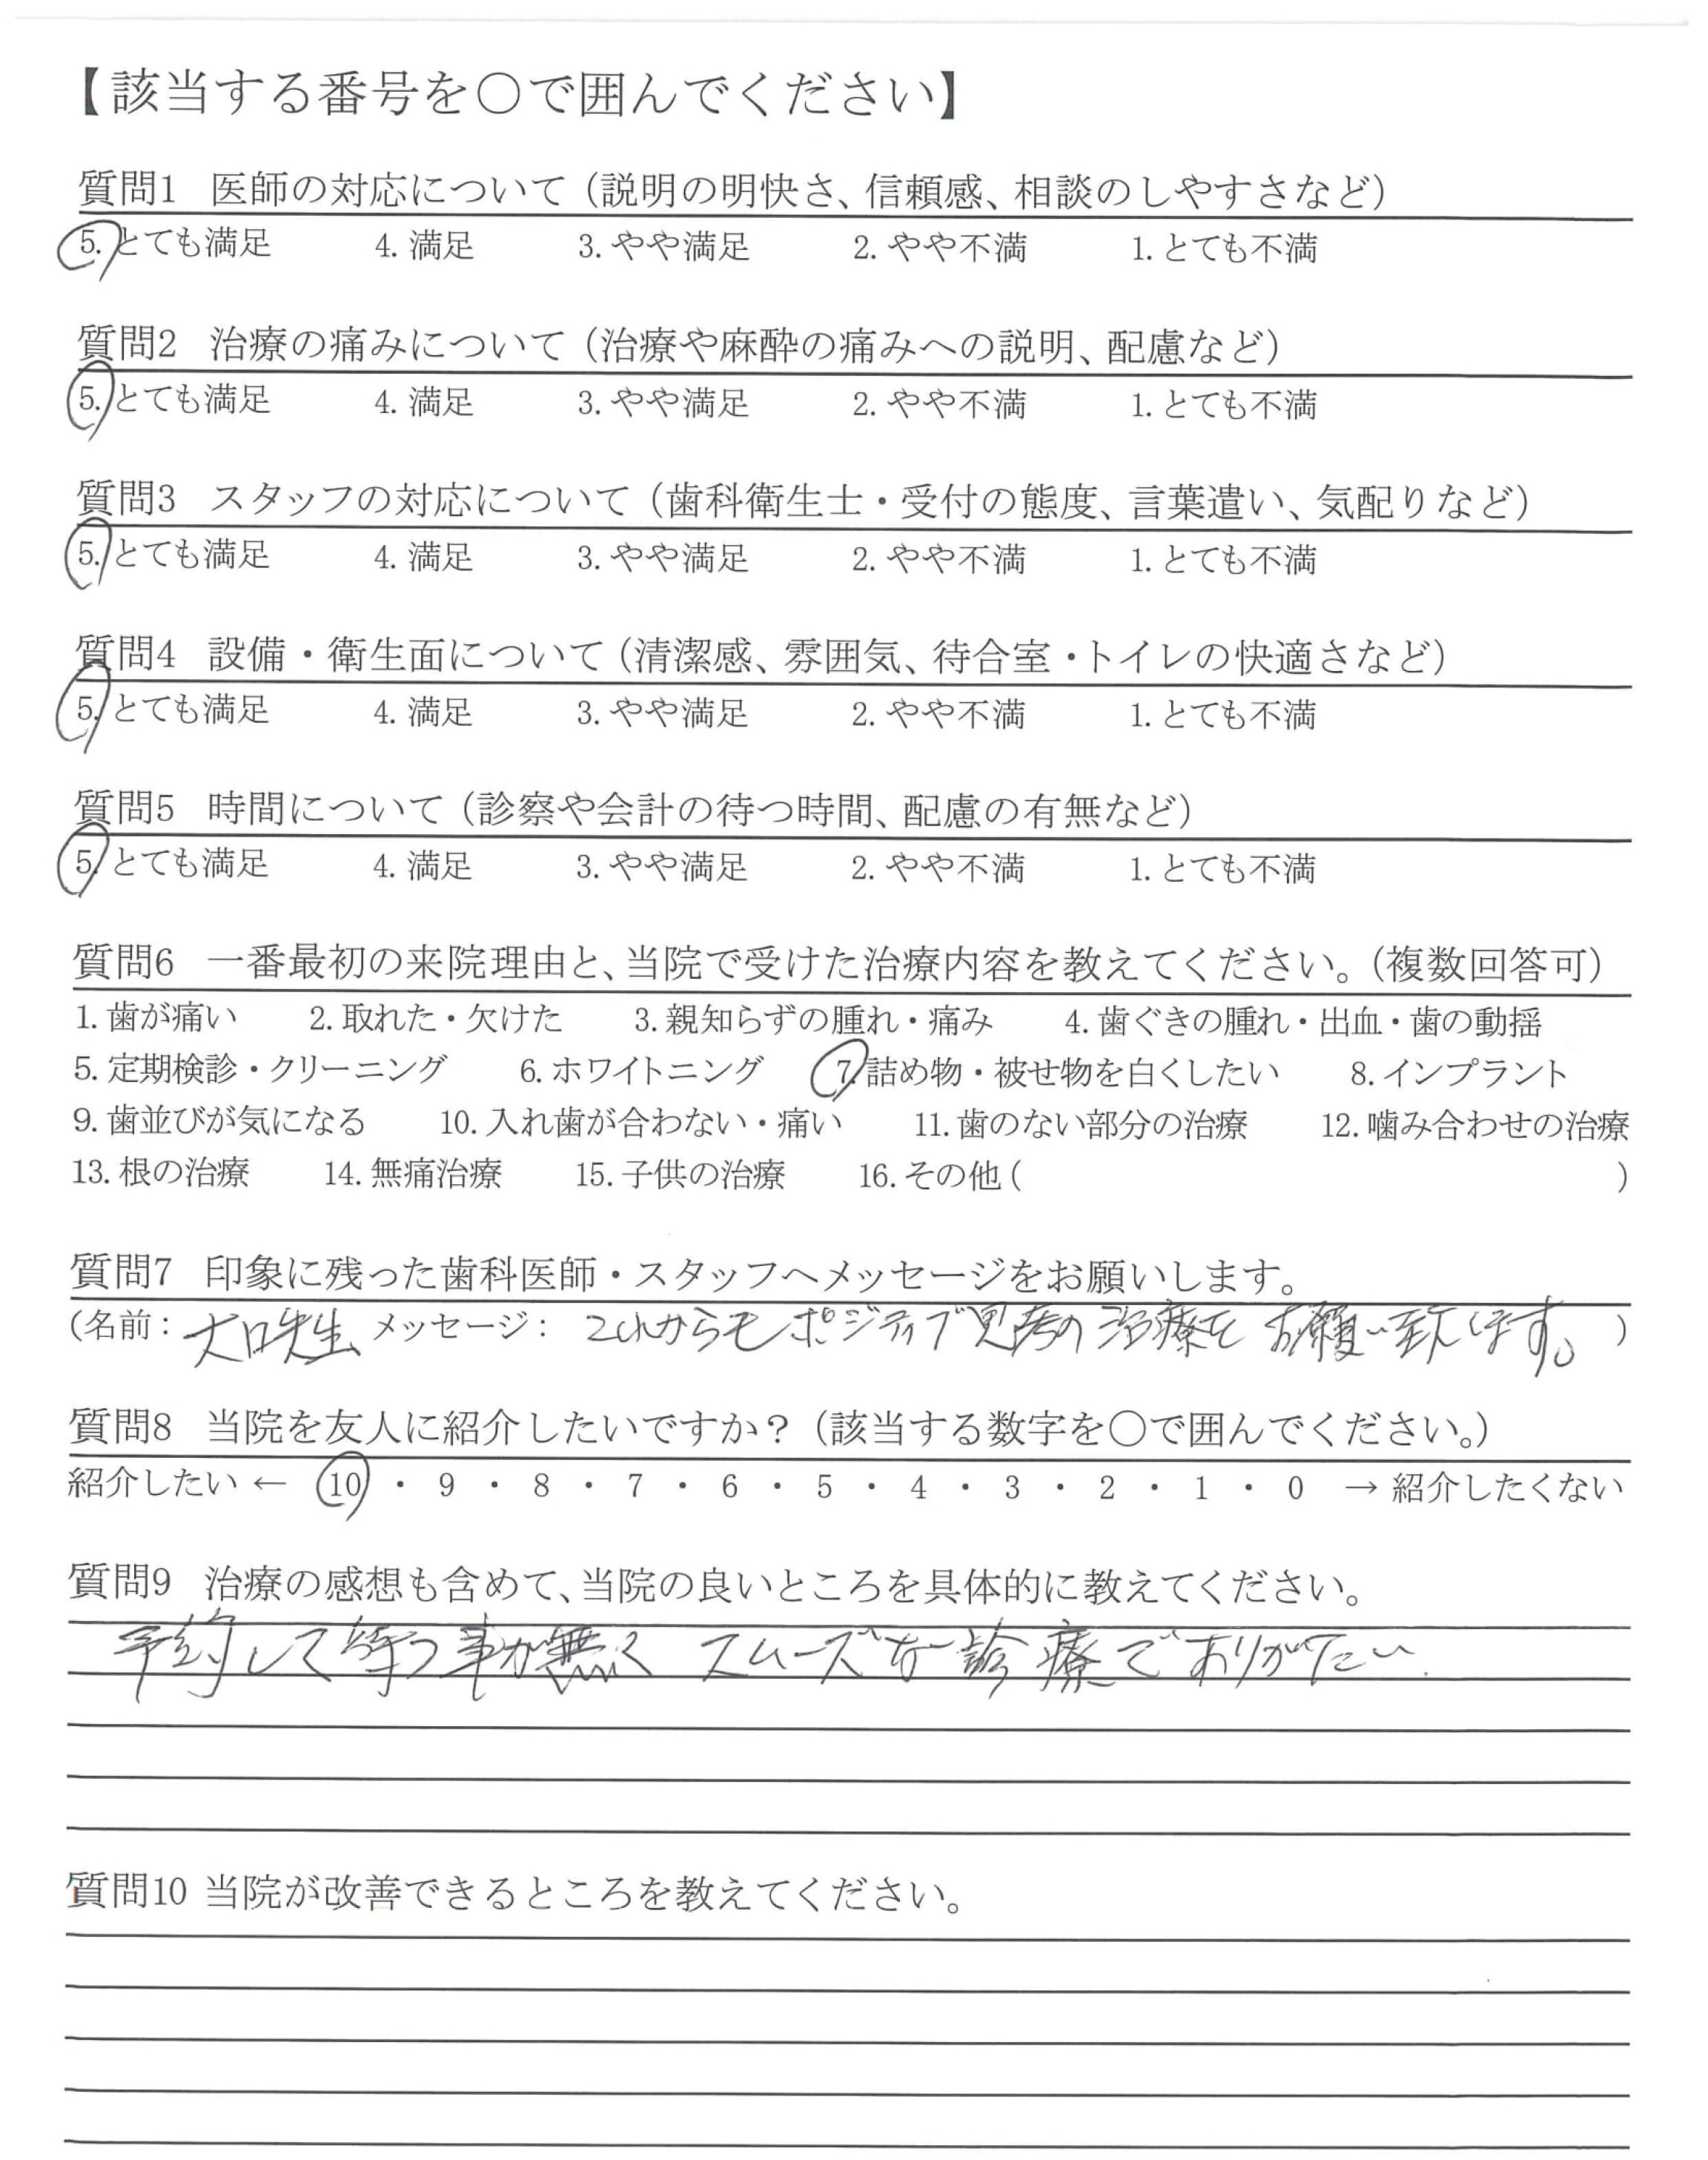 【該当する番号を○で囲んでください】
質問1 医師の対応について（説明の明快さ、信頼感、相談のしやすさなど）
5.とても満足 4.満足 3.やや満足 2.やや不満 1.とても不満
質問2 治療の痛みについて（治療や麻酔の痛みへの説明、配慮など）
5.とても満足 4.満足 3.やや満足 2.やや不満 1.とても不満
質問3 スタッフの対応について（歯科衛生士・受付の態度、言葉遣い、気配りなど）
5.とても満足 4.満足 3.やや満足 2.やや不満 1.とても不満
質問4 設備・衛生面について（清潔感、雰囲気、待合室・トイレの快適さなど）
5.とても満足 4.満足 3.やや満足 2.やや不満 1.とても不満
質問5 時間について（診察や会計の待つ時間、配慮の有無など）
5.とても満足 4.満足 3.やや満足 2.やや不満 1.とても不満
質問6 一番最初の来院理由と、当院で受けた治療内容を教えてください。（複数回答可）
1.歯が痛い 2.取れた・欠けた 3.親知らずの腫れ・痛み 4.歯ぐきの腫れ・出血・歯の動揺
5.定期検診・クリーニング 6.ホワイトニング 7.詰め物・被せ物を白くしたい 8.インプラント
9.歯並びが気になる 10.入れ歯が合わない・痛い 11.歯のない部分の治療 12.噛み合わせの治療
13.根の治療 14.無痛治療 15.子供の治療 16.その他（ ）
質問7 印象に残った歯科医師・スタッフへメッセージをお願いします。
（名前：大口先生 メッセージ：これからもポジティブ思考の治療をお願い致します。）
質問8 当院を友人に紹介したいですか？（該当する数字を○で囲んでください。）
紹介したい ← 10 ・ 9 ・ 8 ・ 7 ・ 6 ・ 5 ・ 4 ・ 3 ・ 2 ・ 1 ・ 0 → 紹介したくない
質問9 治療の感想も含めて、当院の良いところを具体的に教えてください。
予約して待つ事が無く スムーズな診療でありがたい
質問10 当院が改善できるところを教えてください。